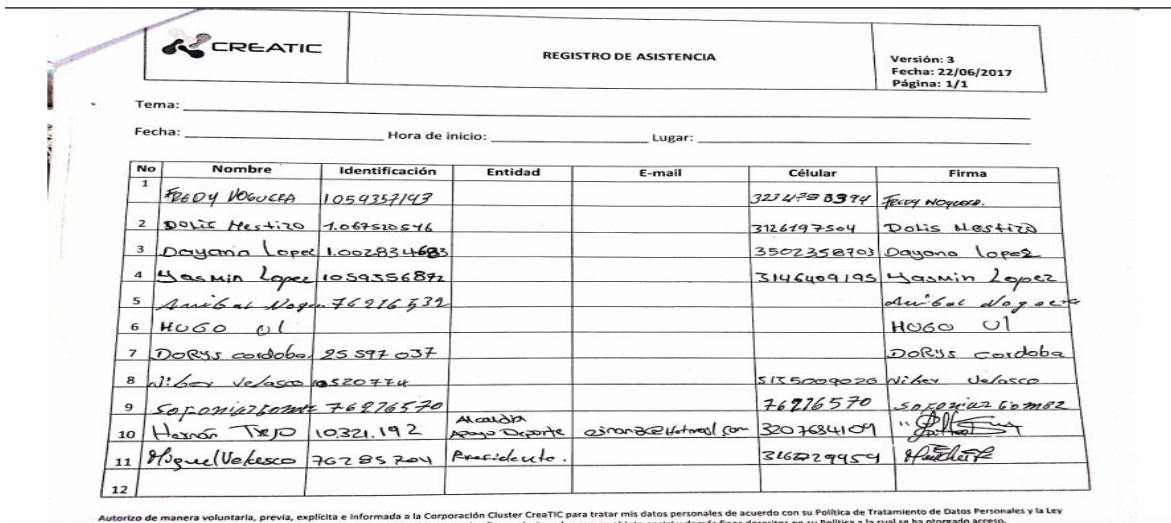 CREATIC
REGISTRO DE ASISTENCIA
Versión: 3
Fecha: 22/06/2017
Página: 1/1
Tema:
Fecha: Hora de inicio: Lugar:
No Nombre Identificación Entidad E-mail Célular Firma
1 FREDY NOGUERA 1059357143 Fredy Noguera.
2 DOLIS Mestizo 1.067520546 3126197504 Dolis Mestizo
3 Dayana Lopez 1.002834683 3502358703 Dayana Lopez
4 Yasmin Lopez 1059356872 3146409195 Yasmin Lopez
5 Anibal 76216532 Anibal Noguera
6 HUGO Ul HUGO Ul
7 DORYS cordoba 25597037 DORYS cordoba
8 Velasco 10520774 Velasco
9 Sofonias Gomez 76276570 76276570 Sofonias Gomez
10 Hernán 10.321.192 Alcaldía Apoyo Deporte 3207684109
11 Miguel Velasco 76285204 Presidente.
12
Autorizo de manera voluntaria, previa, explícita e informada a la Corporación Cluster CreaTIC para tratar mis datos personales de acuerdo con su Política de Tratamiento de Datos Personales y la Ley